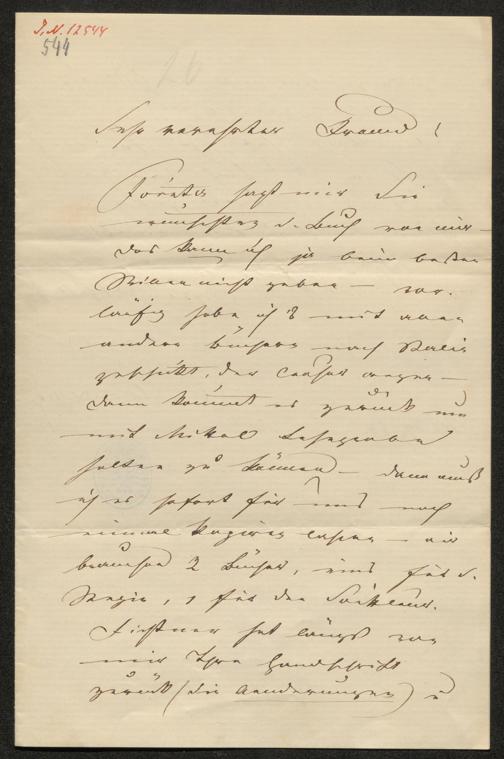 J. N. 12544
544
26
Sehr verehrter Freund!
Förster sagt mir Sie
wünschten d. Buch von mir –
das kann ich ja beim besten
Willen nicht geben – vor-
läufig habe ich's mit allen
anderen Büchern nach
geschickt, der Censur wegen –
dann kommt es zurück um
mit Mitterwurzer Leseprobe
halten zu können – dann muß
ich es sofort für uns noch
einmal kopiren lassen – wir
brauchen 2 Bücher, eins für d.
Regie, 1 für den Souffleur.
Fichtner hat längst von
mir Ihre Handschrift
zurück (die Aenderungen) u